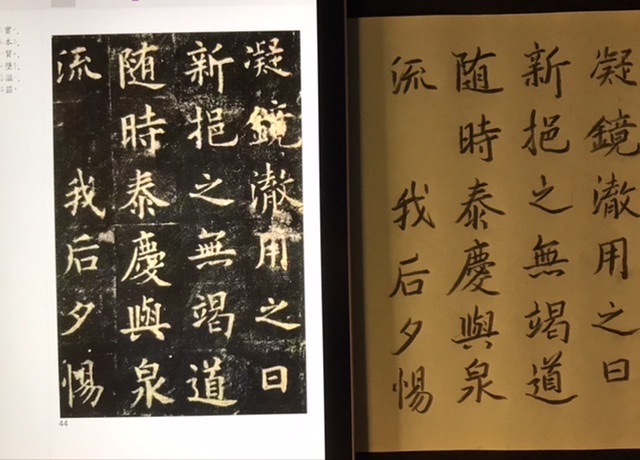 凝鏡澈用之日
新挹之無竭道
随時泰慶與泉
流 我后夕惕
44
凝鏡澈用之日
新挹之無竭道
随時泰慶與泉
流 我后夕惕